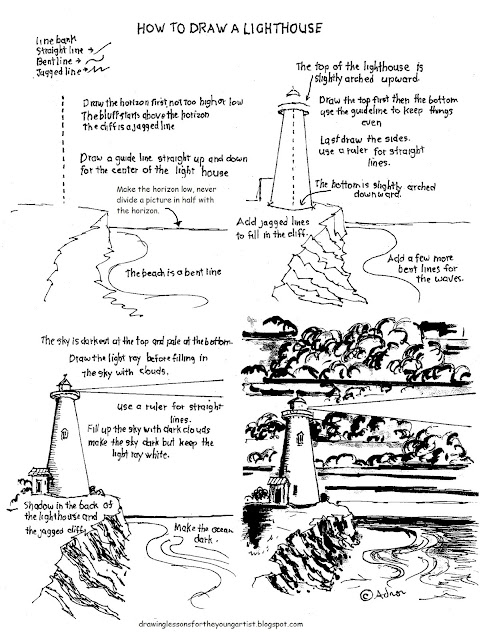 HOW TO DRAW A LIGHTHOUSE
line bank
Straight line →
Bent line →
Jagged line →
Draw the horizon first, not too high or low
The bluff starts above the horizon
The cliff is a jagged line
Draw a guide line straight up and down
for the center of the light house
Make the horizon low, never
divide a picture in half with
the horizon.
The beach is a bent line
The top of the lighthouse is
slightly arched upward.
Draw the top first then the bottom
use the guideline to keep things
even
Last draw the sides.
use a ruler for straight
lines.
The bottom is slightly arched
downward.
Add jagged lines
to fill in the cliff.
Add a few more
bent lines for
the waves.
The sky is darkest at the top and pale at the bottom.
Draw the light ray before filling in
the sky with clouds.
use a ruler for straight
lines.
Fill up the sky with dark clouds
make the sky dark but keep the
light ray white.
Shadow in the back of
the lighthouse and
the jagged cliff.
Make the ocean
dark.
© Adron
drawinglessonsfortheyoungartist.blogspot.com